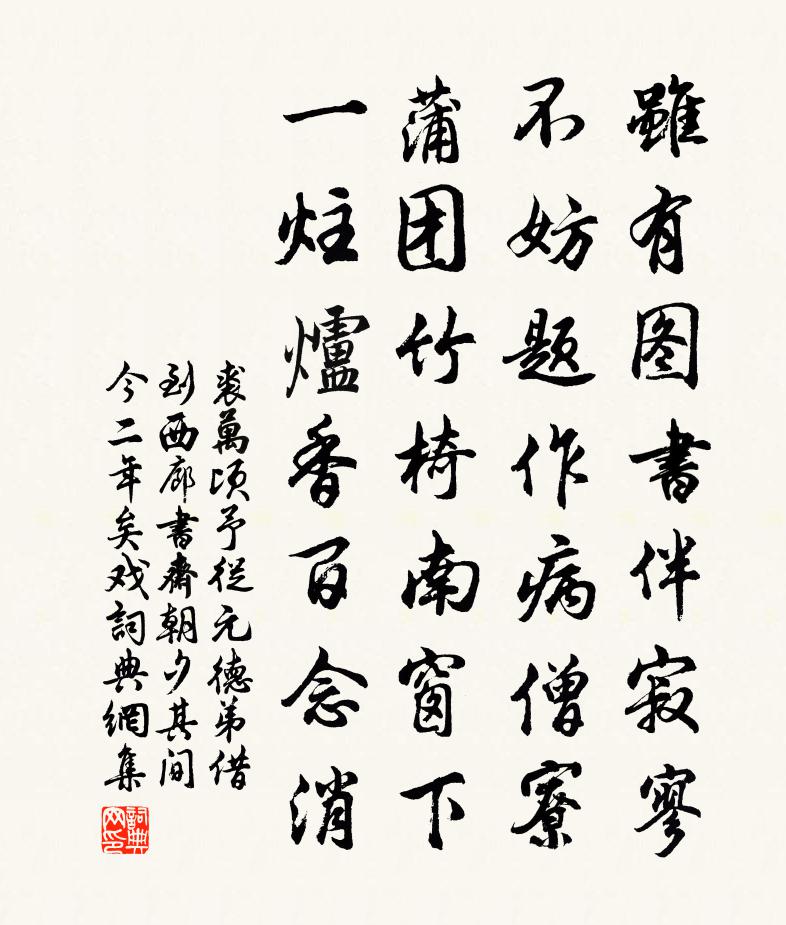 雖有图書伴寂寥
不妨题作病僧寮
蒲团竹椅南窗下
一炷爐香百念消
裘萬顷予從元德弟借
到西廊書齋朝夕其间
今二年矣戏詞典網集
詞典网印